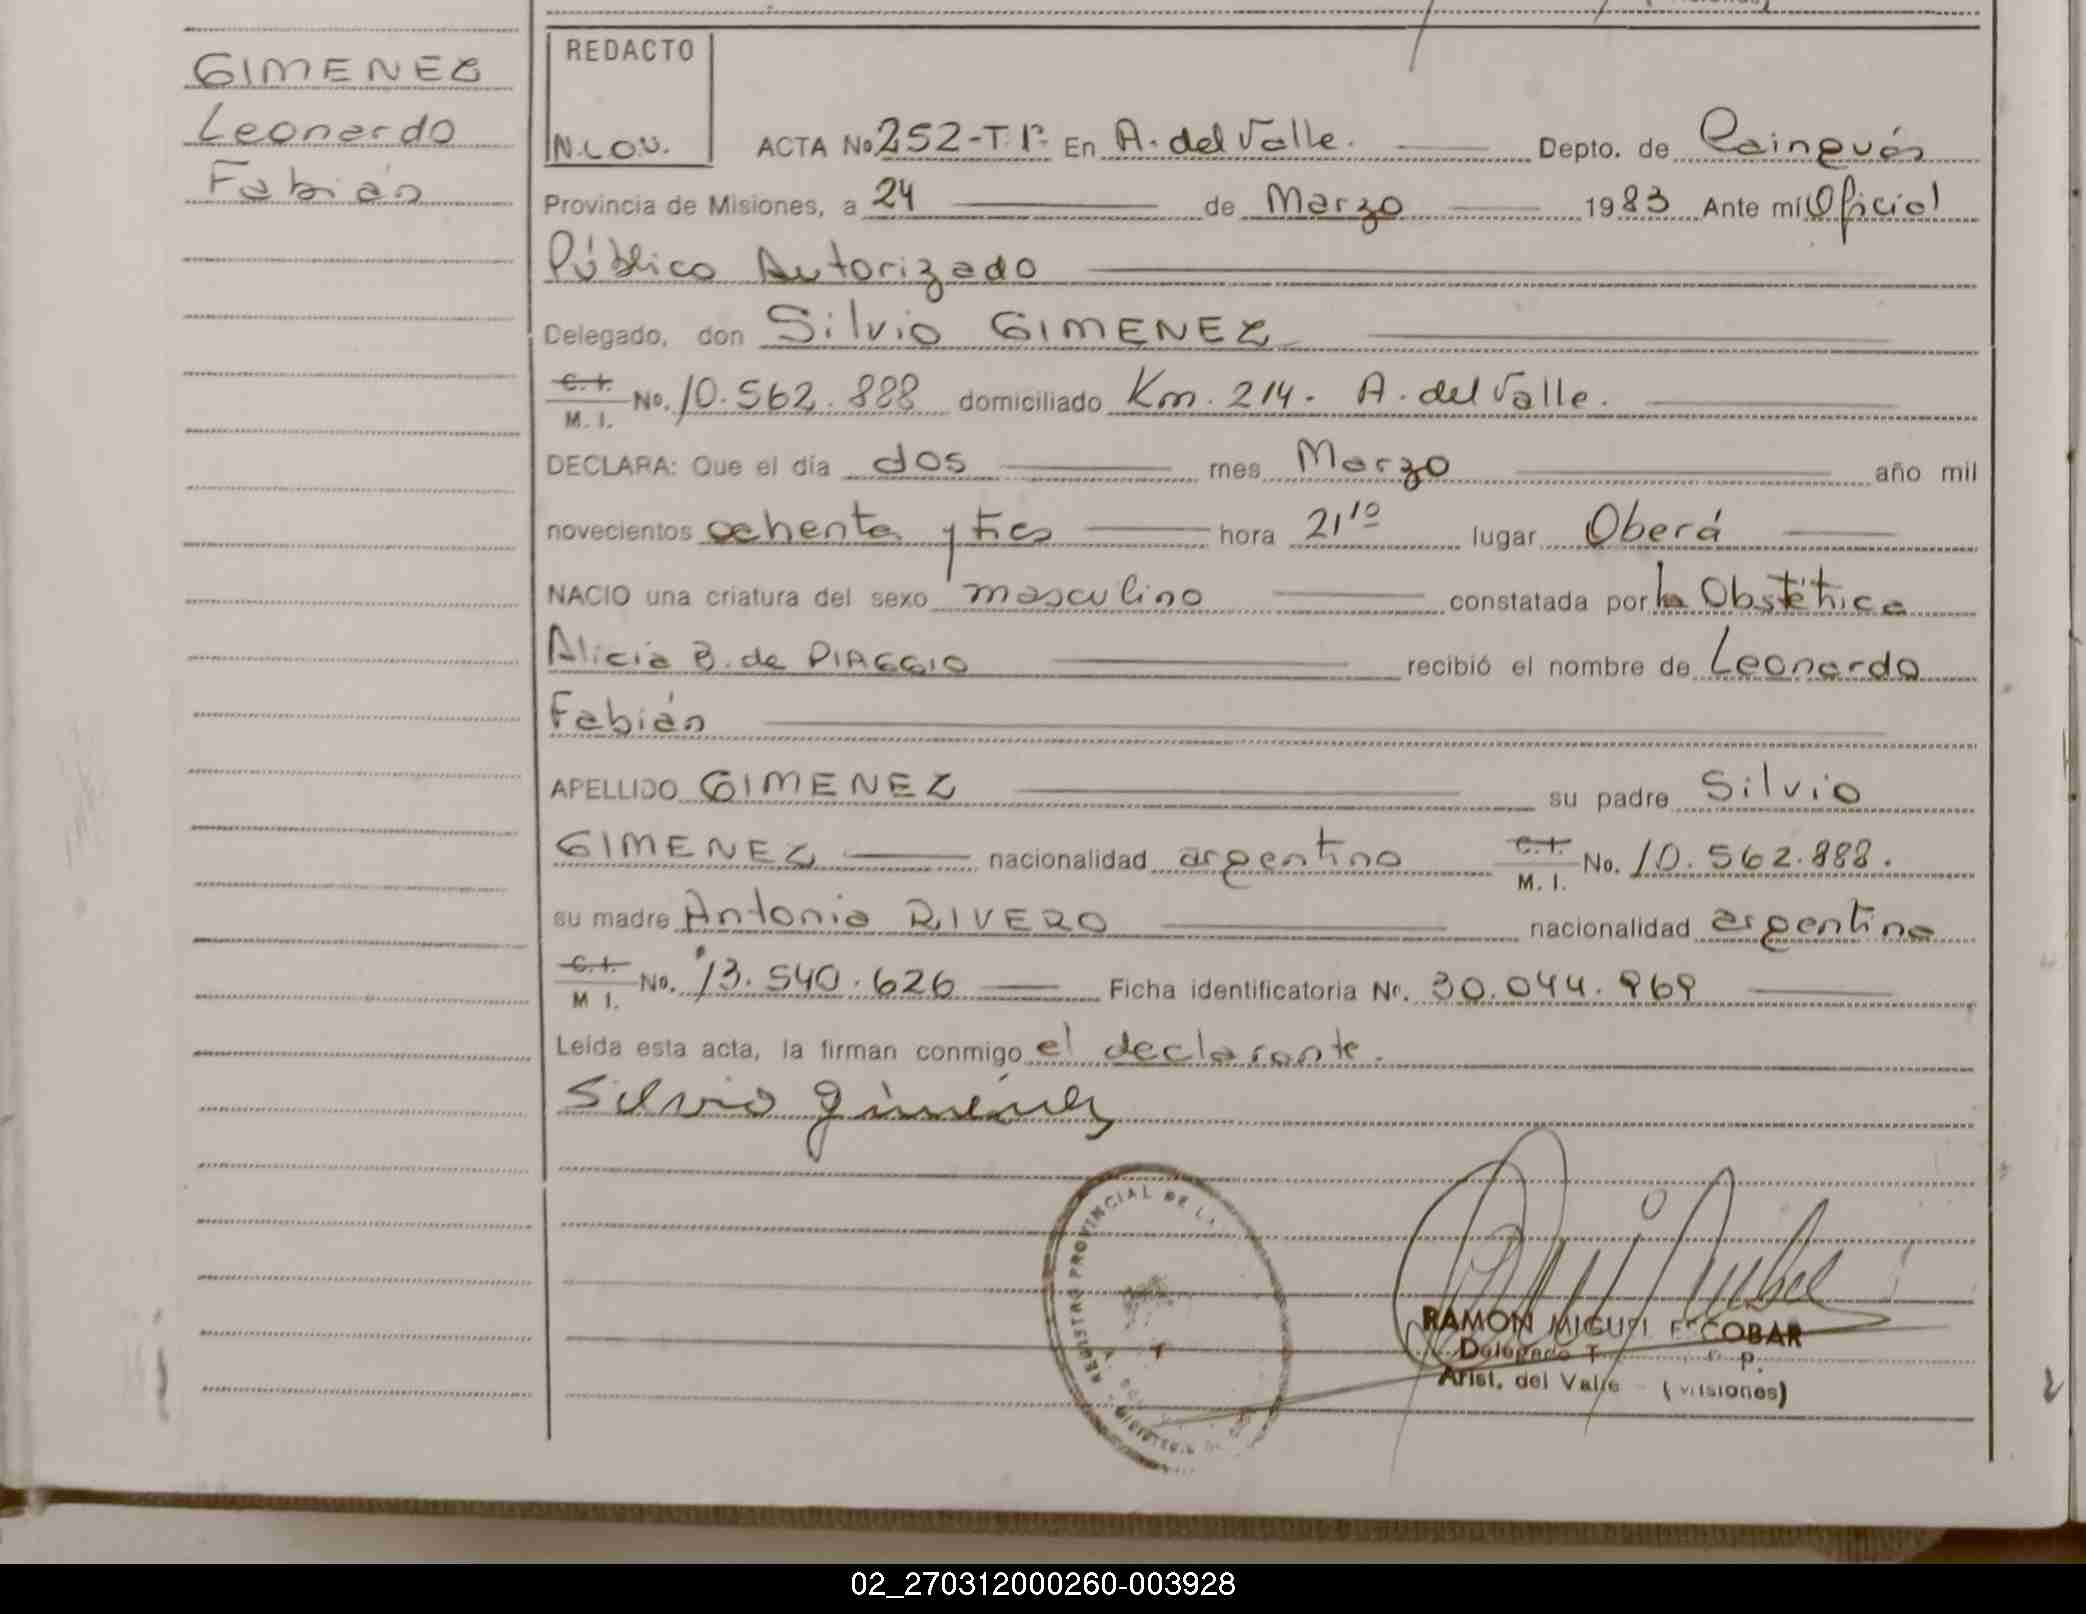 GIMENEZ
Leonardo
Fabián
REDACTO
N.L.O.V.
ACTA No 252-T.1º. En A. del Valle. Depto. de Cainguás
Provincia de Misiones, a 24 de Marzo 1983 Ante mí Oficial
Público Autorizado
Delegado, don Silvio GIMENEZ
C.I. M.I. No. 10.562.888 domiciliado Km. 214. A. del Valle.
DECLARA: Que el día dos mes Marzo año mil
novecientos ochenta y tres hora 21 10 lugar Oberá
NACIO una criatura del sexo masculino constatada por la Obstétrica
Alicia B. de PIAGGIO recibió el nombre de Leonardo
Fabián
APELLIDO GIMENEZ su padre Silvio
GIMENEZ nacionalidad argentino C.I. M.I. No. 10.562.888.
su madre Antonia RIVERO nacionalidad argentina
C.I. M I. No. 13.540.626 Ficha identificatoria Nº. 30.044.969
Leída esta acta, la firman conmigo el declarante.
Silvio Giménez
REGISTRO PROVINCIAL DE LA
RAMON MIGUEL ESCOBAR
Delegado T. P.
Arist. del Valle - (Misiones)
02_270312000260-003928